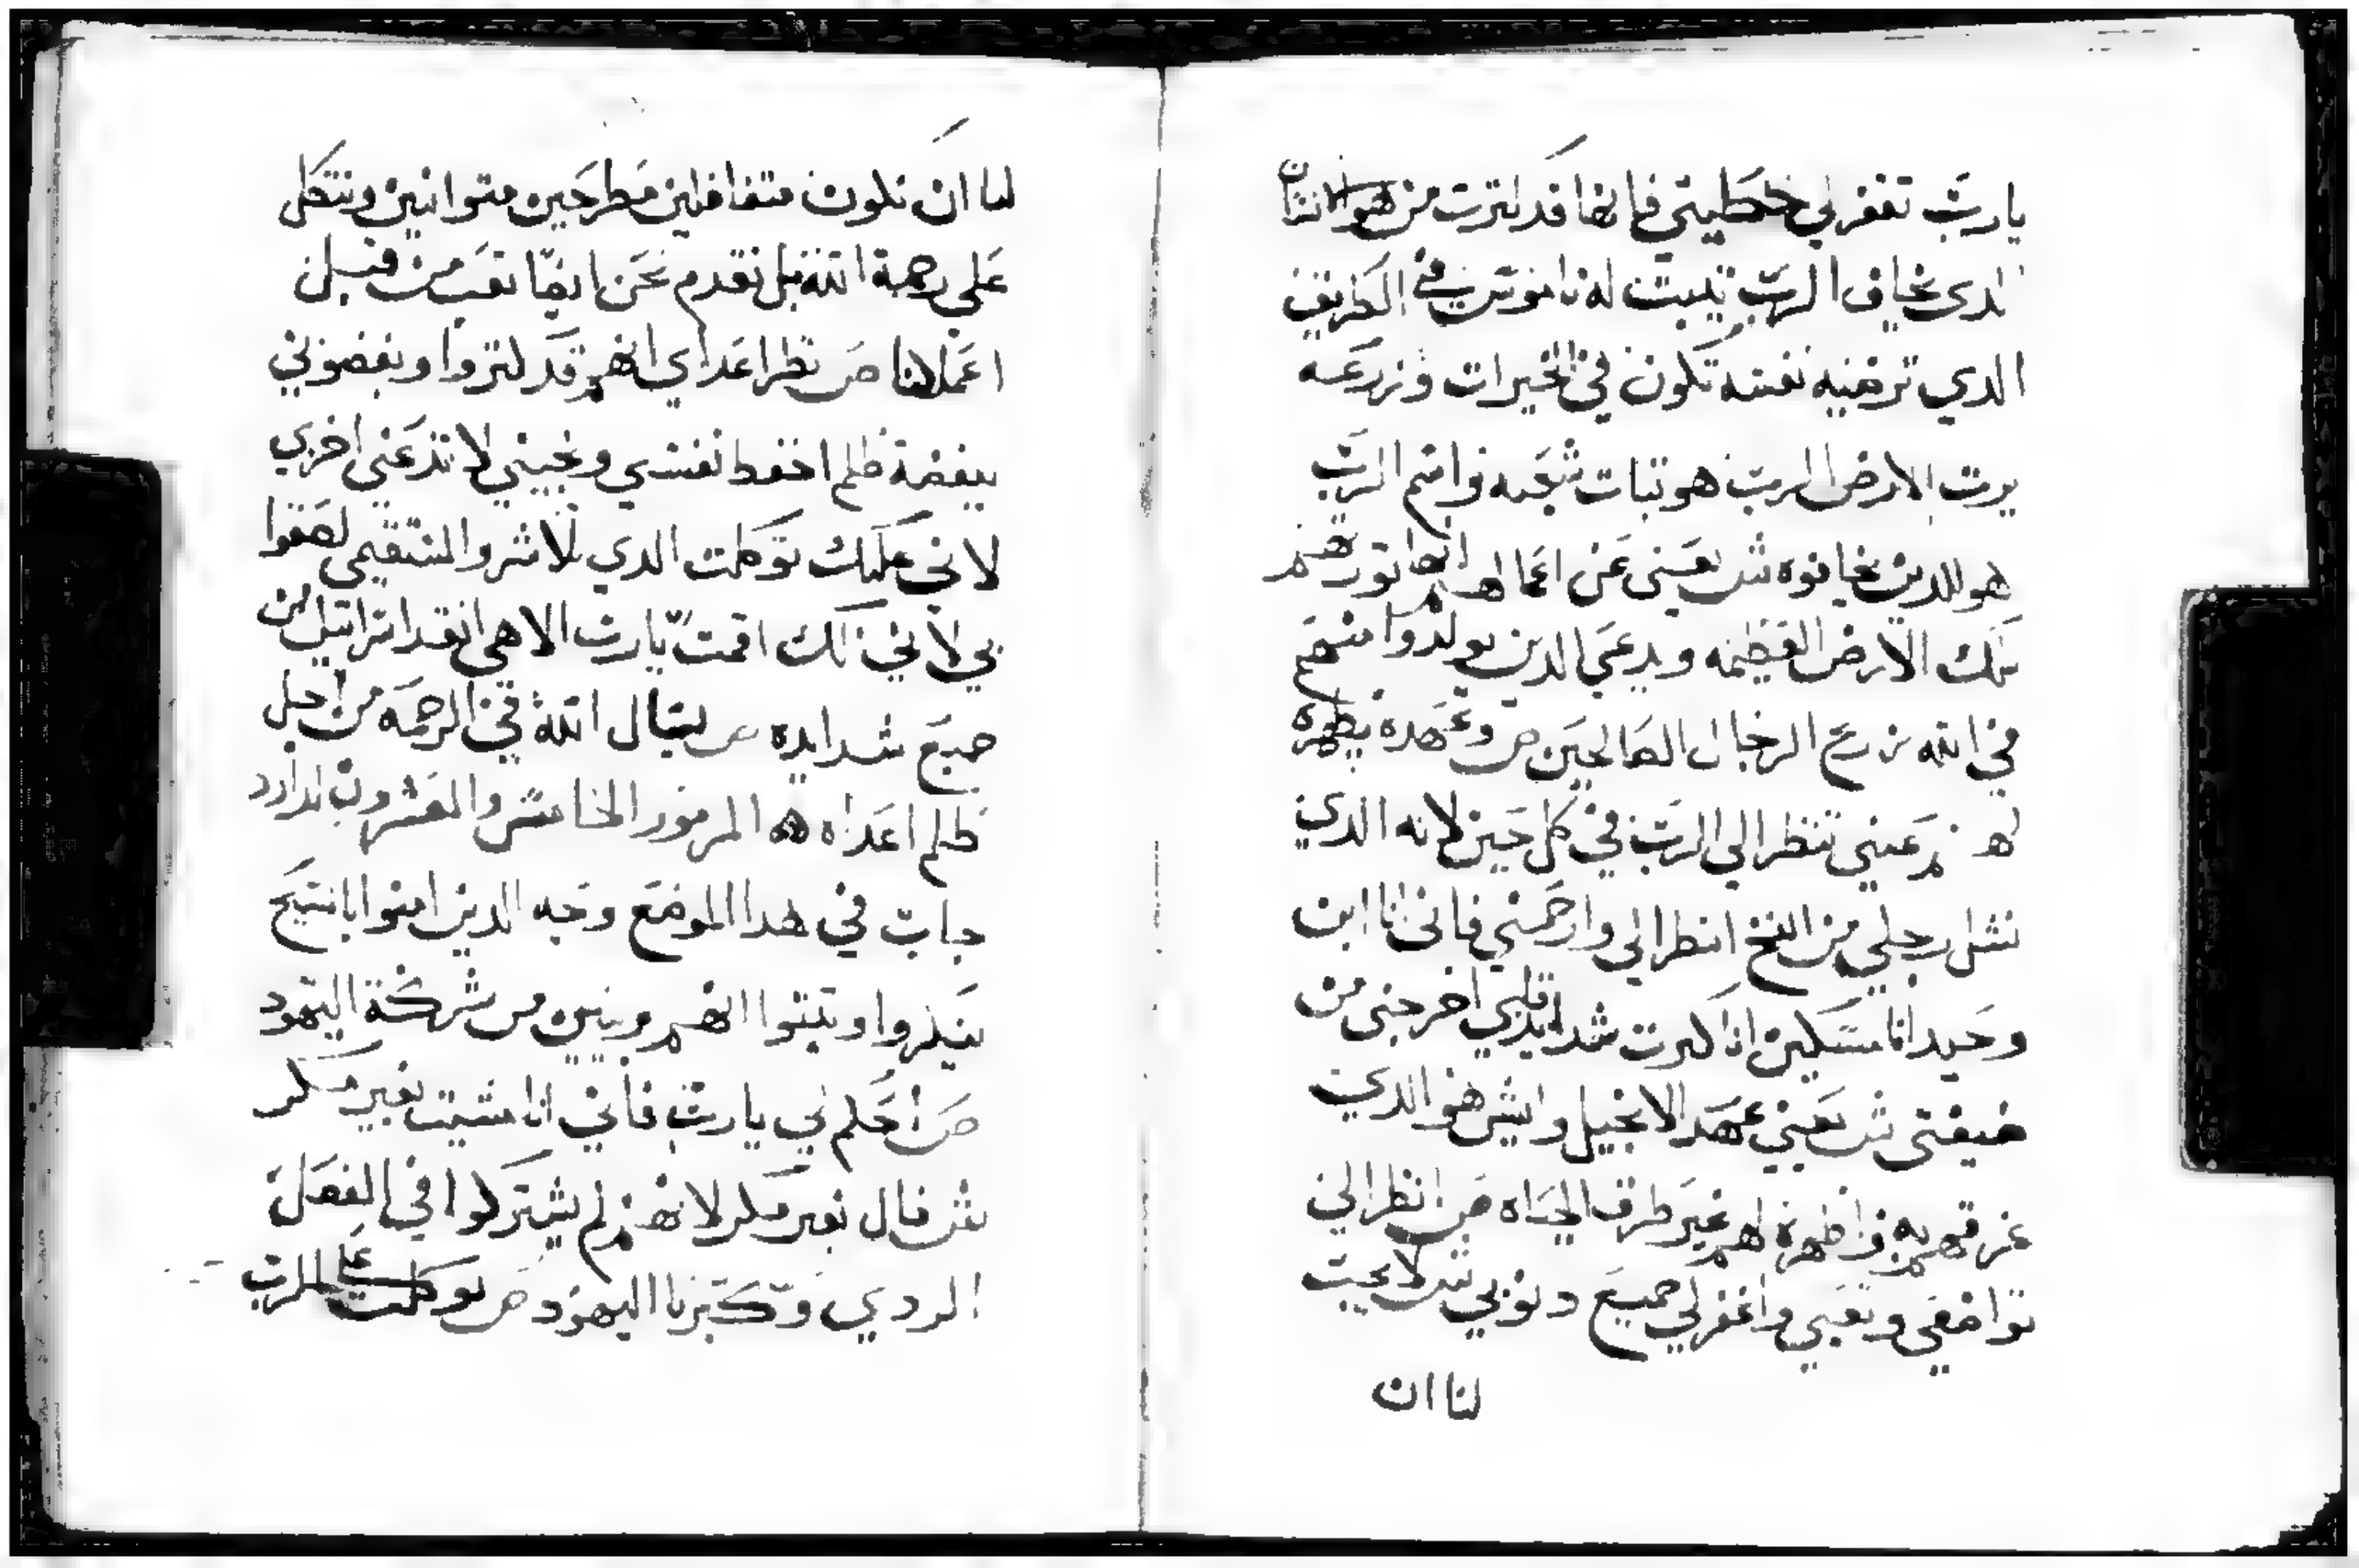 يارب تغفر لي خطيتي فانها قد كترت من هو الانسان
الدي يخاف الرب يثبت له ناموس في الطريق
الدي ترضيه نفسه تكون في الخيرات وزرعه
يرت الارض الرب هو تبات شعبه واسم الرب
هو للدين يخافوه ش يعني عن اعمالهم انها تورتهم
تلك الارض العظيمه ويدعي الدين يولدوا منهم
في الله زرع الرجال الصالحين ص وعهده يظهره
لهم عيني تنظر الي الرب في كل حين لانه الدي
نشل رجلي من الفخ انظر الي وارحمني فاني انا ابن
وحيد انا مسكين انا كترت شدايد قلبي اخرجني من
ضيقتي ش يعني عهد الانجيل وايش هو الدي
عرفهم به واظهره لهم غير طرق الحياه ص انظر الي
تواضعي وتعبي واغفر لي جميع دنوبي ش لا يجب
لنا ان
لنا ان نكون متغافلين مطرحين متوانين ونتكل
علي رحمة الله بل نقدم نحن ايضا تعب من قبل
اعمالنا ص نظر اعداي انهم قد كتروا وبغضوني
ببغضة ظلم احفظ نفسي ونجيني لا تدعني اخزي
لاني عليك توكلت الدي بلا شر والمستقيمي لصقوا
بي لاني لك اقمت يارب الاهي انقد اسراييل من
جميع شدايده ش يسال الله في الرحمه من اجل
ظلم اعداه المزمور الخامس والعشرون لداود
جاب في هدا الموضع وجه الدين امنوا بالمسيح
ص احكم لي يارب فاني انا مشيت بغير مكر
ش قال بغير مكر لانهم لم يشتركوا في الفعل
الردي وكتبرنا اليهود ص توكلت علي الرب